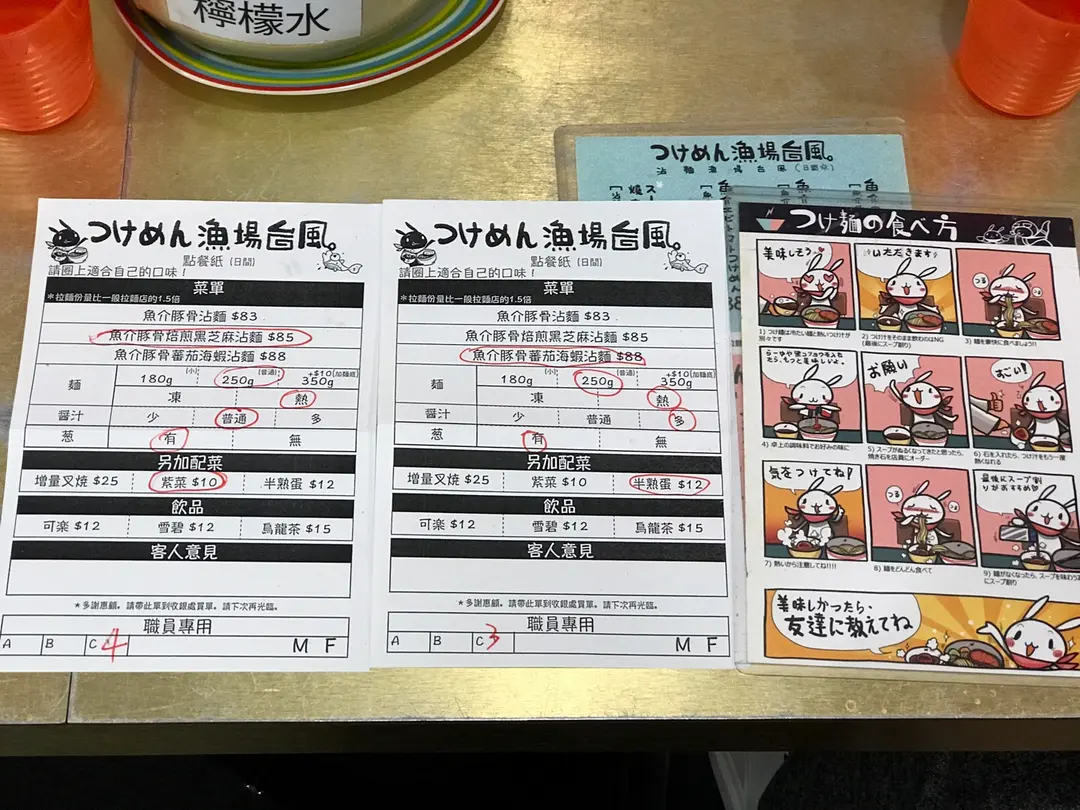 檸檬水
つけめん漁場台風。
點餐紙 (日間)
請圈上適合自己的口味！
菜單
*拉麵份量比一般拉麵店的1.5倍
魚介豚骨沾麵 $83
魚介豚骨焙煎黑芝麻沾麵 $85
魚介豚骨蕃茄海蝦沾麵 $88
麵
180g (小)
250g (普通)
+$10(加麵底)
350g
凍
熱
醬汁
少
普通
多
葱
有
無
另加配菜
增量叉燒 $25
紫菜 $10
半熟蛋 $12
飲品
可樂 $12
雪碧 $12
烏龍茶 $15
客人意見
*多謝惠顧。請帶此單到收銀處買單。請下次再光臨。
職員專用
A
B
C 4
M F
つけめん漁場台風。
點餐紙 (日間)
請圈上適合自己的口味！
菜單
*拉麵份量比一般拉麵店的1.5倍
魚介豚骨沾麵 $83
魚介豚骨焙煎黑芝麻沾麵 $85
魚介豚骨蕃茄海蝦沾麵 $88
麵
180g (小)
250g (普通)
+$10(加麵底)
350g
凍
熱
醬汁
少
普通
多
葱
有
無
另加配菜
增量叉燒 $25
紫菜 $10
半熟蛋 $12
飲品
可樂 $12
雪碧 $12
烏龍茶 $15
客人意見
*多謝惠顧。請帶此單到收銀處買單。請下次再光臨。
職員專用
A
B
C 3
M F
つけめん漁場台風。
沾麵漁場台風 (日間)
つけ麵の食べ方
美味しそう
いただきます
つる
1) つけ麺は冷たい麺と熱いつけ汁が
別々です
2) つけ汁をそのまま飲むのはNG
(最後にスープ割り)
3) 麺を豪快に食べましょう!!
お願い
あごい!
4) 卓上の調味料でお好みの味に
5) スープがぬるくなってきたと思ったら、
焼き石を店員にオーダー
6) 石を入れたら、つけ汁をもう一度
熱くなれる
気をつけてね!
つる
最後にスープ割
りがおすすめ
7) 熱いから注意してね!!!!
8) 麺をどんどん食べて
9) 麺がなくなったら、スープを味わう為
にスープ割り
美味しかったら、
友達に教えてね